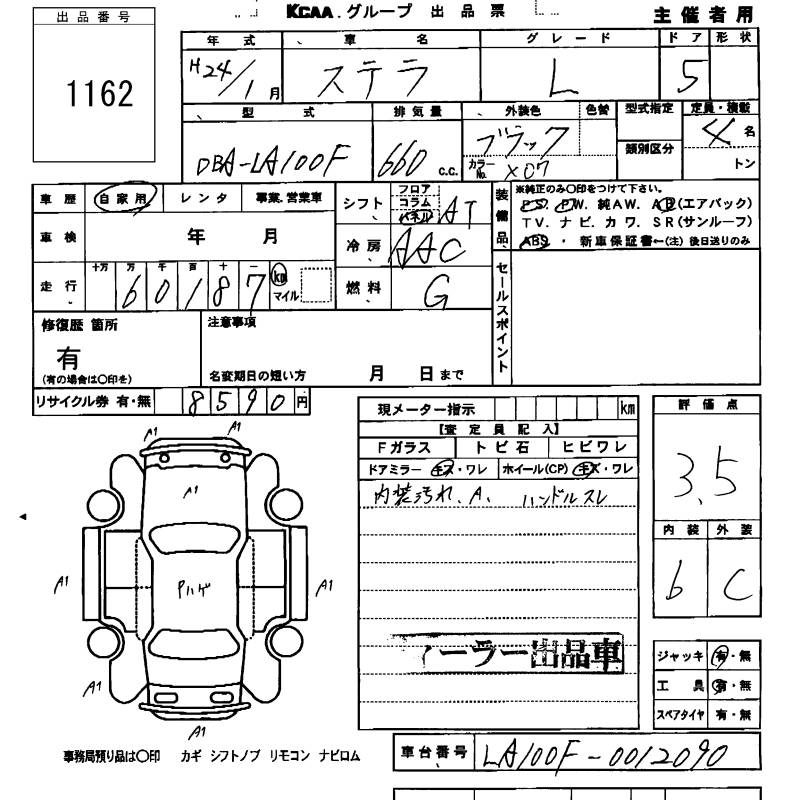 KCAA.グループ 出品票
主催者用
出品番号
1162
年式 車名 グレード ドア 形状
H24/1月 ステラ L 5
型式 排気量 外装色 色替 型式指定 定員・積載
DBA-LA100F 660 c.c. ブラック カラーNo. X07 類別区分 4名
トン
車歴 自家用 レンタ 事業.営業車
シフト フロア コラム パネル AT
装備品 ※純正のみ〇印をつけて下さい。
P.S. P.W. 純AW. AB(エアバック)
TV. ナビ. カワ. SR(サンルーフ)
ABS ・ 新車保証書←(注) 後日送りのみ
車検 年 月
冷房 AAC
走行 十万 万 千 百 十 一
6 0 1 8 7 km マイル
燃料 G
セールスポイント
修復歴 箇所
有
(有の場合は〇印を)
注意事項
名変期日の短い方 月 日まで
リサイクル券 有・無 8 5 9 0 円
現メーター指示 km
【査定員記入】
Fガラス トビ石 ヒビワレ
ドアミラー キズ・ワレ ホイール(CP) キズ・ワレ
内装汚れ、A. ハンドルスレ
評価点
3.5
内装 外装
b C
A1 A1
A1
A1 Pハゲ A1
A1
A1
ーラー出品車
ジャッキ 有・無
工具 有・無
スペアタイヤ 有・無
事務局預り品は〇印 カギ シフトノブ リモコン ナビロム
車台番号 LA100F-0012090